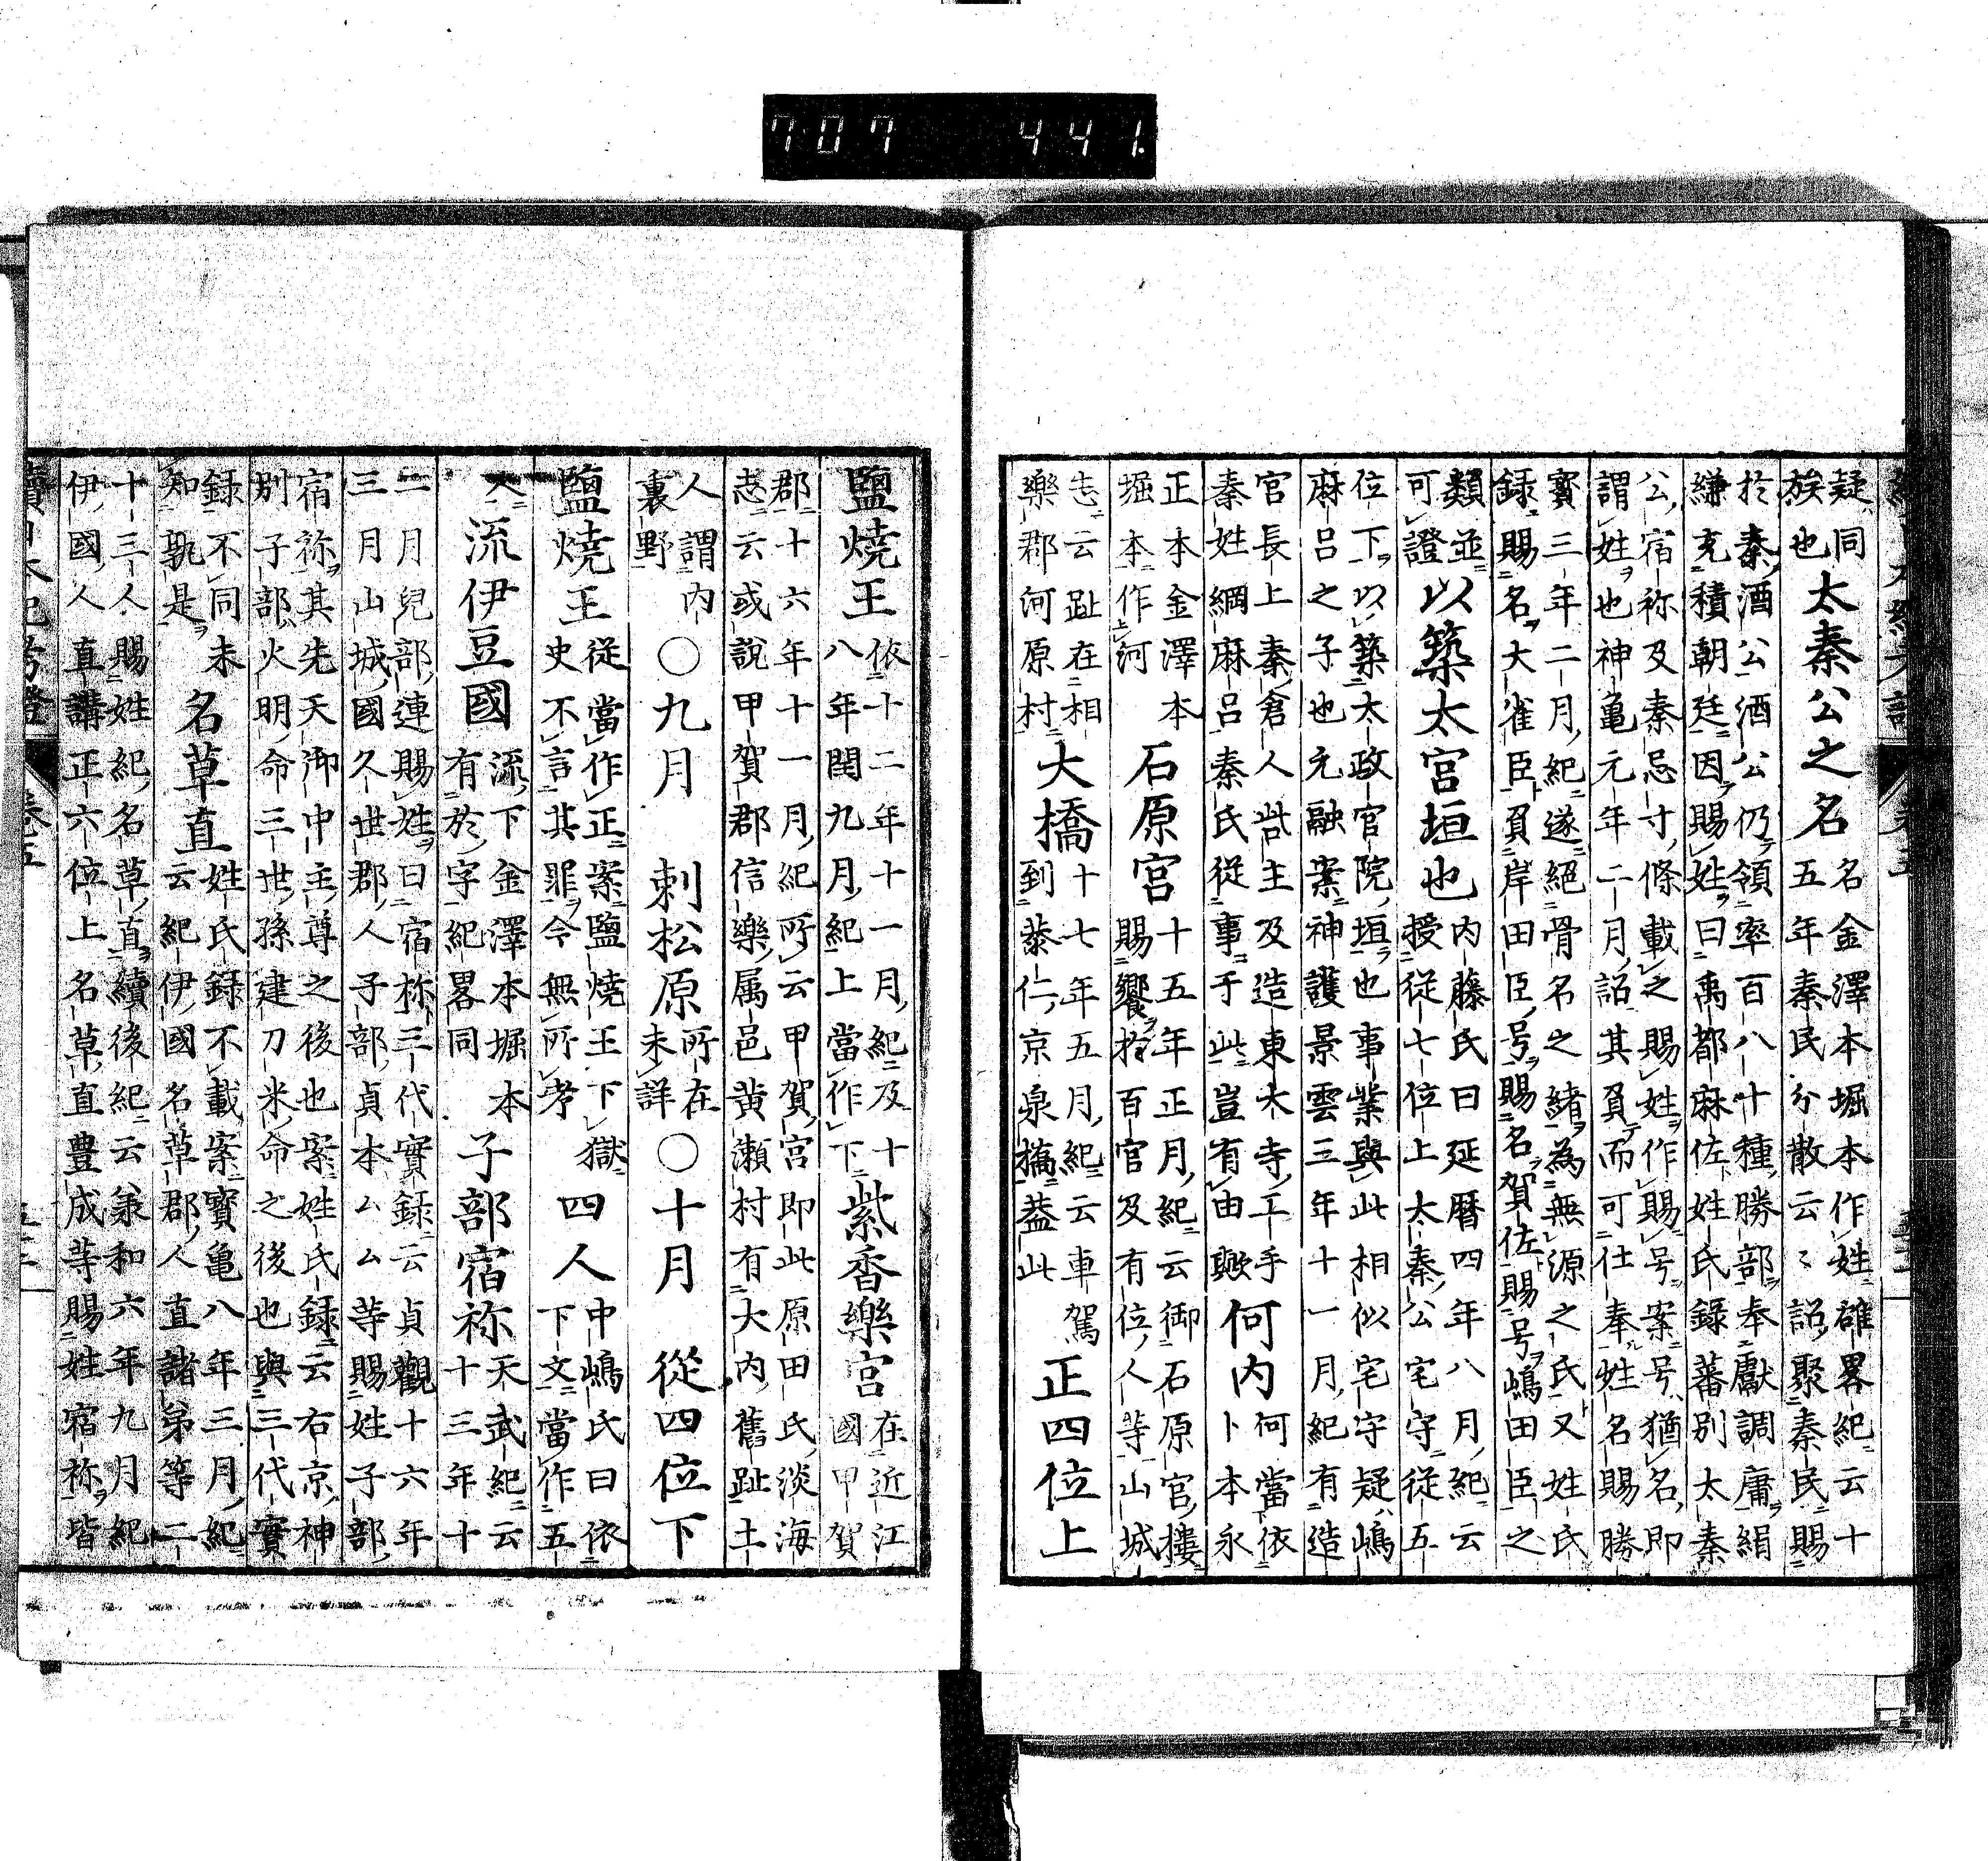 疑同
族也
太秦公之名
名金澤本堀本作姓雄畧紀云十
五年秦民分散云〻詔聚秦民賜
於秦酒公酒公仍領率百八十種勝部奉獻調庸絹
縑充積朝廷因賜姓曰禹都麻佐姓氏録蕃別太秦
公宿祢及秦忌寸條載之賜姓作賜号案号猶名即
謂姓也神亀元年二月詔其負而可仕奉姓名賜勝
寳三年二月紀遂絕骨名之緒為無源之氏又姓氏
録賜名大雀臣負岸田臣号賜名賀佐賜号嶋田臣之
類並
可證
以築太宮垣也
内藤氏曰延暦四年八月紀云
授從七位上太秦公宅守從五
位下以築太政官院垣也事業與此相似宅守疑嶋
麻呂之子也元融案神護景雲三年十一月紀有造
官長上秦倉人呰主及造東大寺工手
秦姓綱麻呂秦氏從事于此豈有由歟
何内
何當依
卜本永
正本金澤本
堀本作河
石原宮
十五年正月紀云御石原宮樓
賜饗於百官及有位人等山城
志云趾在相
樂郡河原村
大橋
十七年五月紀云車駕
到恭仁京泉橋蓋此
正四位上
鹽燒王
依十二年十一月紀及十
八年閏九月紀上當作下
紫香樂宮
在近江
國甲賀
郡十六年十一月紀所云甲賀宮即此原田氏淡海
志云或説甲賀郡信樂属邑黄瀬村有大内舊趾土
人謂内
裏野
○九月
刺松原
所在
未詳
○十月
從四位下
鹽燒王
從當作正案鹽燒王下獄
史不言其罪今無所考
四人
中嶋氏曰依
下文當作五
人
流伊豆國
流下金澤本堀本
有於字紀畧同
子部宿祢
天武紀云
十三年十
二月兒部連賜姓曰宿祢三代實録云貞觀十六年
三月山城國久世郡人子部貞本公公等賜姓子部
宿祢其先天御中主尊之後也案姓氏録云右京神
別子部火明命三世孫建刀米命之後也與三代實
録不同未
知孰是
名草直
姓氏録不載案寳亀八年三月紀
云紀伊國名草郡人直諸弟等二
十三人賜姓紀名草直續後紀云羕和六年九月紀
伊國人直講正六位上名草直豊成等賜姓宿祢皆
續日本紀考證
卷五